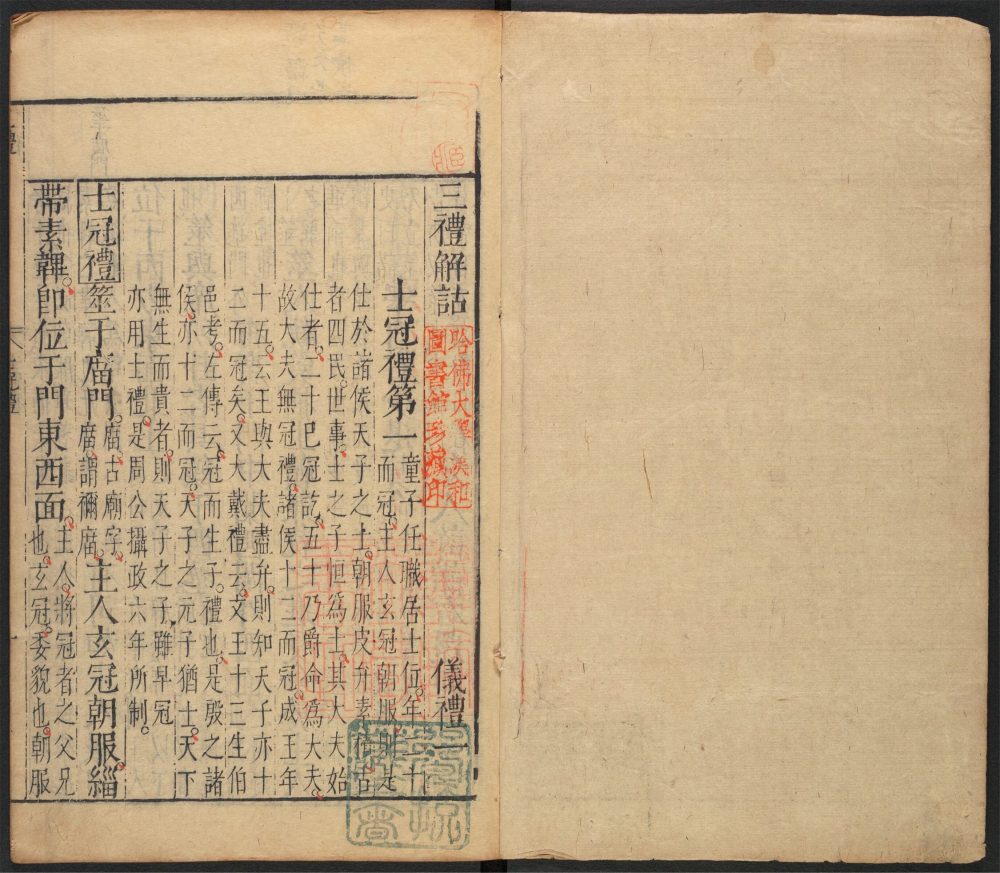 三禮解詁 儀禮一
士冠禮第一童子任職居士位年二十
而冠主人玄冠朝服則是
仕於諸侯天子之士朝服皮弁素積古
者四民世事士之子恒為士其大夫始
仕者二十巳冠訖五十乃爵命為大夫
故大夫無冠禮諸侯十二而冠成王年
十五云王與大夫盡弁則知天子亦十
二而冠矣又大戴禮云文王十三生伯
邑考左傳云冠而生子禮也是殷之諸
侯亦十二而冠天子之元子猶士天下
無生而貴者則天子之子雖早冠
亦用士禮是周公攝政六年所制
士冠禮筮于廟門廟古廟字廟謂禰廟主人玄冠朝服緇
帶素韠即位于門東西面主人將冠者之父兄也玄冠委貌也朝服
哈佛大學漢和
圖書館珍藏印